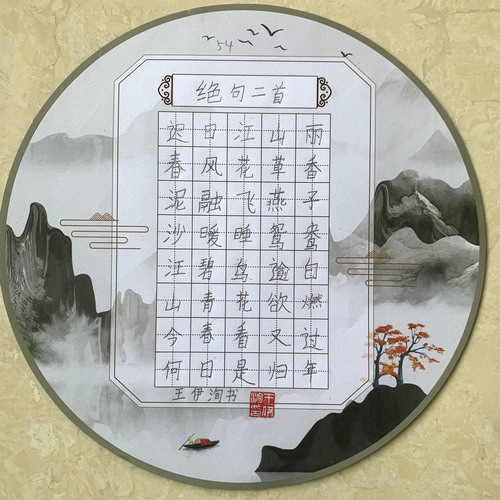 54
绝句二首
迟日江山丽
春风花草香
泥融飞燕子
沙暖睡鸳鸯
江碧鸟逾白
山青花欲燃
今春看又过
何日是归年
王伊洵书